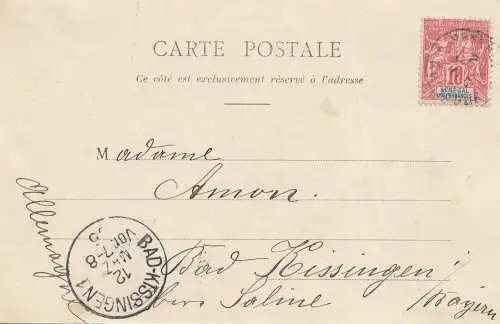 CARTE POSTALE
Ce côté est exclusivement réservé à l'adresse
10
SÉNÉGAL
ET DÉPENDANCES
Madame
Amon.
Bad Kissingen
Saline Bayern
Allemagne
BAD-KISSINGEN 1
12
MRZ
Vor. 7-8